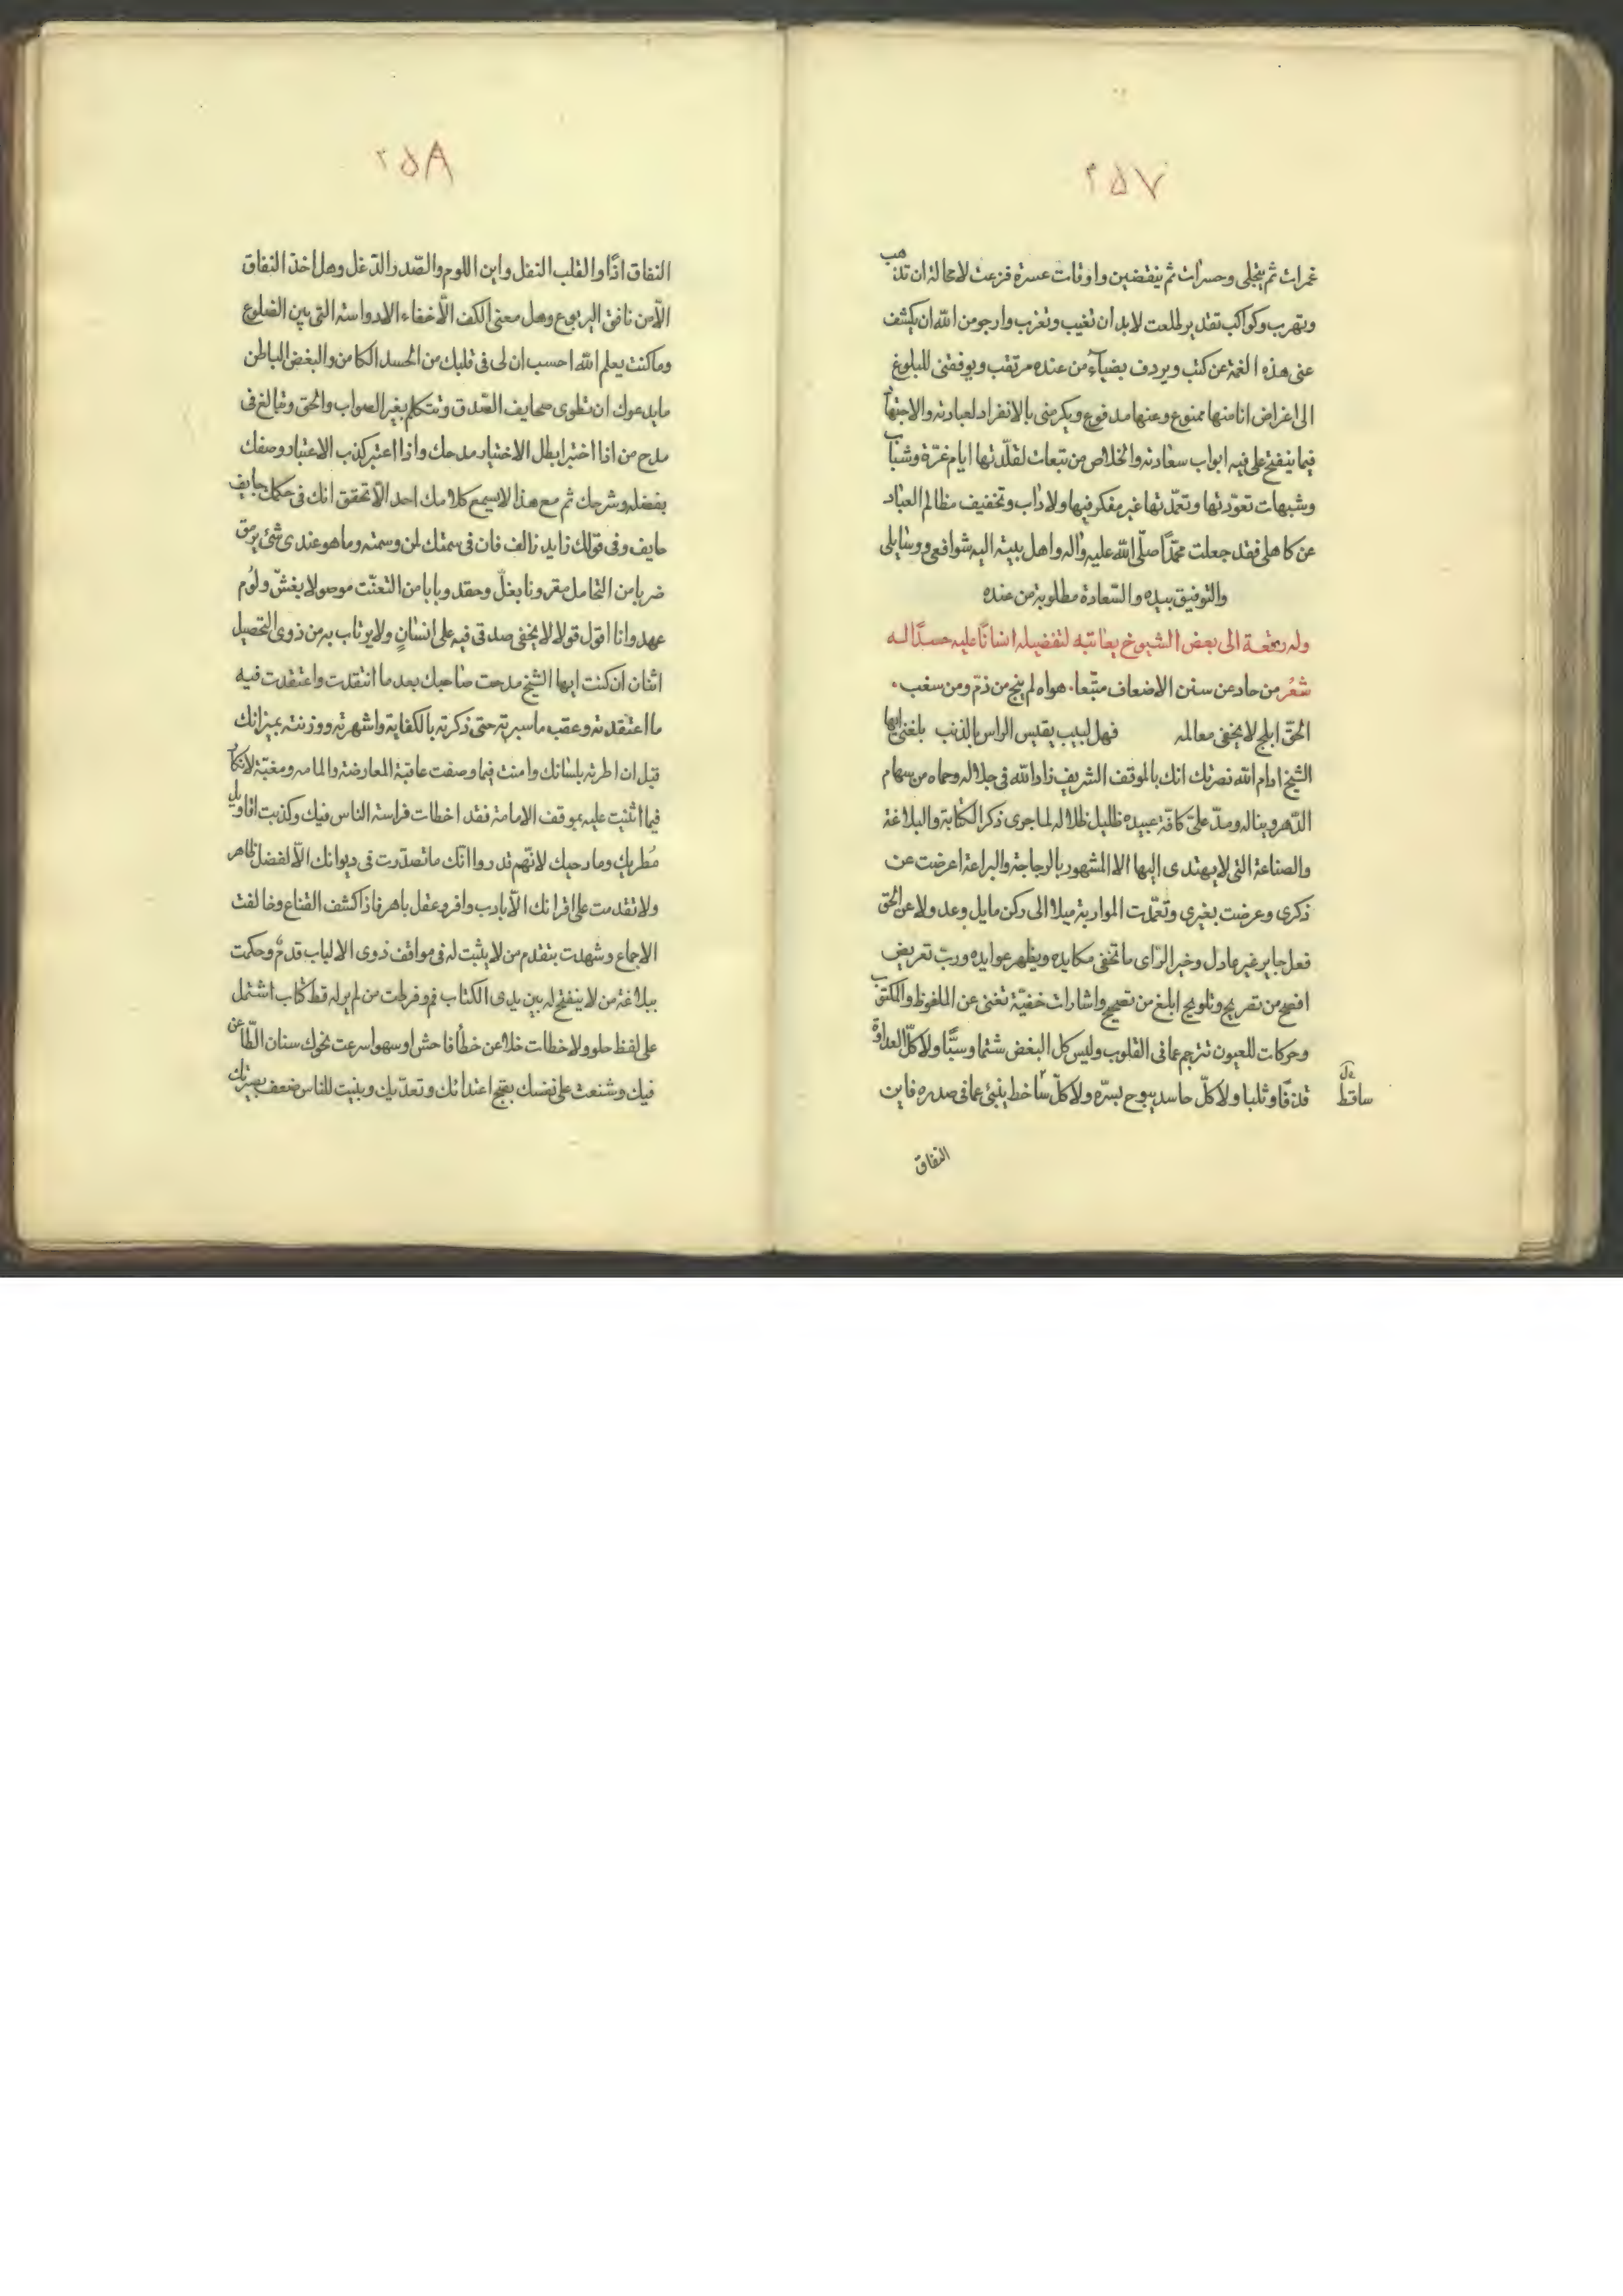 ٢٥٧
غمرات ثم ينجلى وحسرات ثم ينقضين واوقات عسرة فزعت لامحالة ان تذهب
وتهرب وكواكب تقدير طلعت لابد ان تغيب وتغرب وارجو من الله ان يكشف
عنى هذه الغمة عن كثب ويردف بضياء من عنده مرتقب ويوفقنى للبلوغ
الى اغراض انا منها ممنوع وعنها مدفوع ويكرمنى بالانفراد لعبادته والاجتها
فيما ينفتح على فيه ابواب سعادته والخلاص من تبعات لقلّدتها ايام غرّة وشباب
وشبهات تعوّدتها وتعمّدتها غير مفكر فيها ولا داب وتخفيف مظالم العباد
عن كاهلى فقد جعلت محمّدًا صلّى الله عليه واله واهل بيته اليه شوافعى ووسايلى
والتوفيق بيده والسّعادة مطلوبة من عنده
وله رقعة الى بعض الشيوخ يعاتبه لتفضيله انسانًا عليه حسدًا له
شعر من حاد عن سنن الاضعاف متّبعا. هواه لم ينج من ذمّ ومن سغب.
الحقّ ابلج لا يخفى معالمه فهل لبيب يقيس الراس بالذنب بلغنى ايها
الشيخ ادام الله نصرتك انك بالموقف الشريف زاد الله فى جلاله وحماه من سهام
الدّهر وبناله ومدّ على كافّة عبيده ظليل ظلاله لما جرى ذكر الكتابة والبلاغة
والصناعة التى لا يهتدى اليها الا المشهور بالرجاجة والبراعة اعرضت عن
ذكرى وعرضت بغيرى وتعمّدت المواربة ميلا الى ركن مايل وعدولا عن الحق
فعل جاير غير عادل وخير الرّاى ما تخفى مكايده ويظهر عوايده وربّ تعريض
افصح من تصريح وتلويح ابلغ من تصحيح واشارات خفيّة تغنى عن الملفوظ والمكتوب
وحركات للعيون تترجم عما فى القلوب وليس كل البغض شتما وسبًّا ولا كلّ العداوة
قذفًا وثلبا ولا كلّ حاسد يبوح بسرّه ولا كلّ ساخط ينبئ عما فى صدره فاين
ساقط
النفاق
٢٥٨
النفاق اذًا والقلب النغل واين اللوم والصّدر الدّغل وهل اخذ النفاق
الّا من نافق اليربوع وهل معنى الكف الّا خفاء الادواسته التى بين الضلوع
وما كنت يعلم الله احسب ان لى فى قلبك من الحسد الكامن والبغض الباطن
ما يدعوك ان تطوى صحايف الصّدق وتتكلم بغير الصواب والحق وتبالغ فى
مدح من اذا اختبر ابطل الاختيار مدحك واذا اعتبر كذب الاعتبار وصفك
بفضله وشرحك ثم مع هذا لا يسمع كلامك احد الّا تحقق انك فى حكمك جايف
حايف وفى قولك زايد زالف فان فى سمتك لمن وسمته وما هو عندى شئ يرمق
ضربا من التحامل مقرونا بغلّ وحقد وبابا من التعنّت موصولا بغشّ ولؤم
عهد وانا اقول قولا لا يخفى صدقى فيه على انسان ولا يرتاب به من ذوى التحصيل
اثنان ان كنت ايها الشيخ مدحت صاحبك بعد ما انتقدت واعتقدت فيه
ما اعتقدته وعقب ما سبرته حتى ذكرته بالكفاية واشهرته ووزنته بميزانك
قبل ان اطريه بلسانك وامنت فيما وصفت عاقبة المعارضة والمامه ومغبّة لانكار
فيما اثنيت عليه بموقف الامامة فقد اخطات فراسة الناس فيك وكذبت اقاويل
مُطريك ومادحيك لانّهم قدروا انّك ما تصدّرت فى ديوانك الّا لفضل ظاهر
ولا تقدمت على اقرانك الّا بادب وافر وعقل باهر فاذا كشف القناع وخالفت
الاجماع وشهدت بتقدم من لا يثبت له فى مواقف ذوى الالباب قدمٌ وحكمت
ببلاغة من لا ينفتح له بين يدى الكتاب فم وفرطت من لم ير له قط كتاب اشتمل
على لفظ حلو ولا خطات خلا عن خطأ فاحش او سهو اسرعت نحوك سنان الطّاعن
فيك وشنعت على نفسك بقبح اعتدائك وتعدّيك وبنيت للناس ضعف بصيرتك